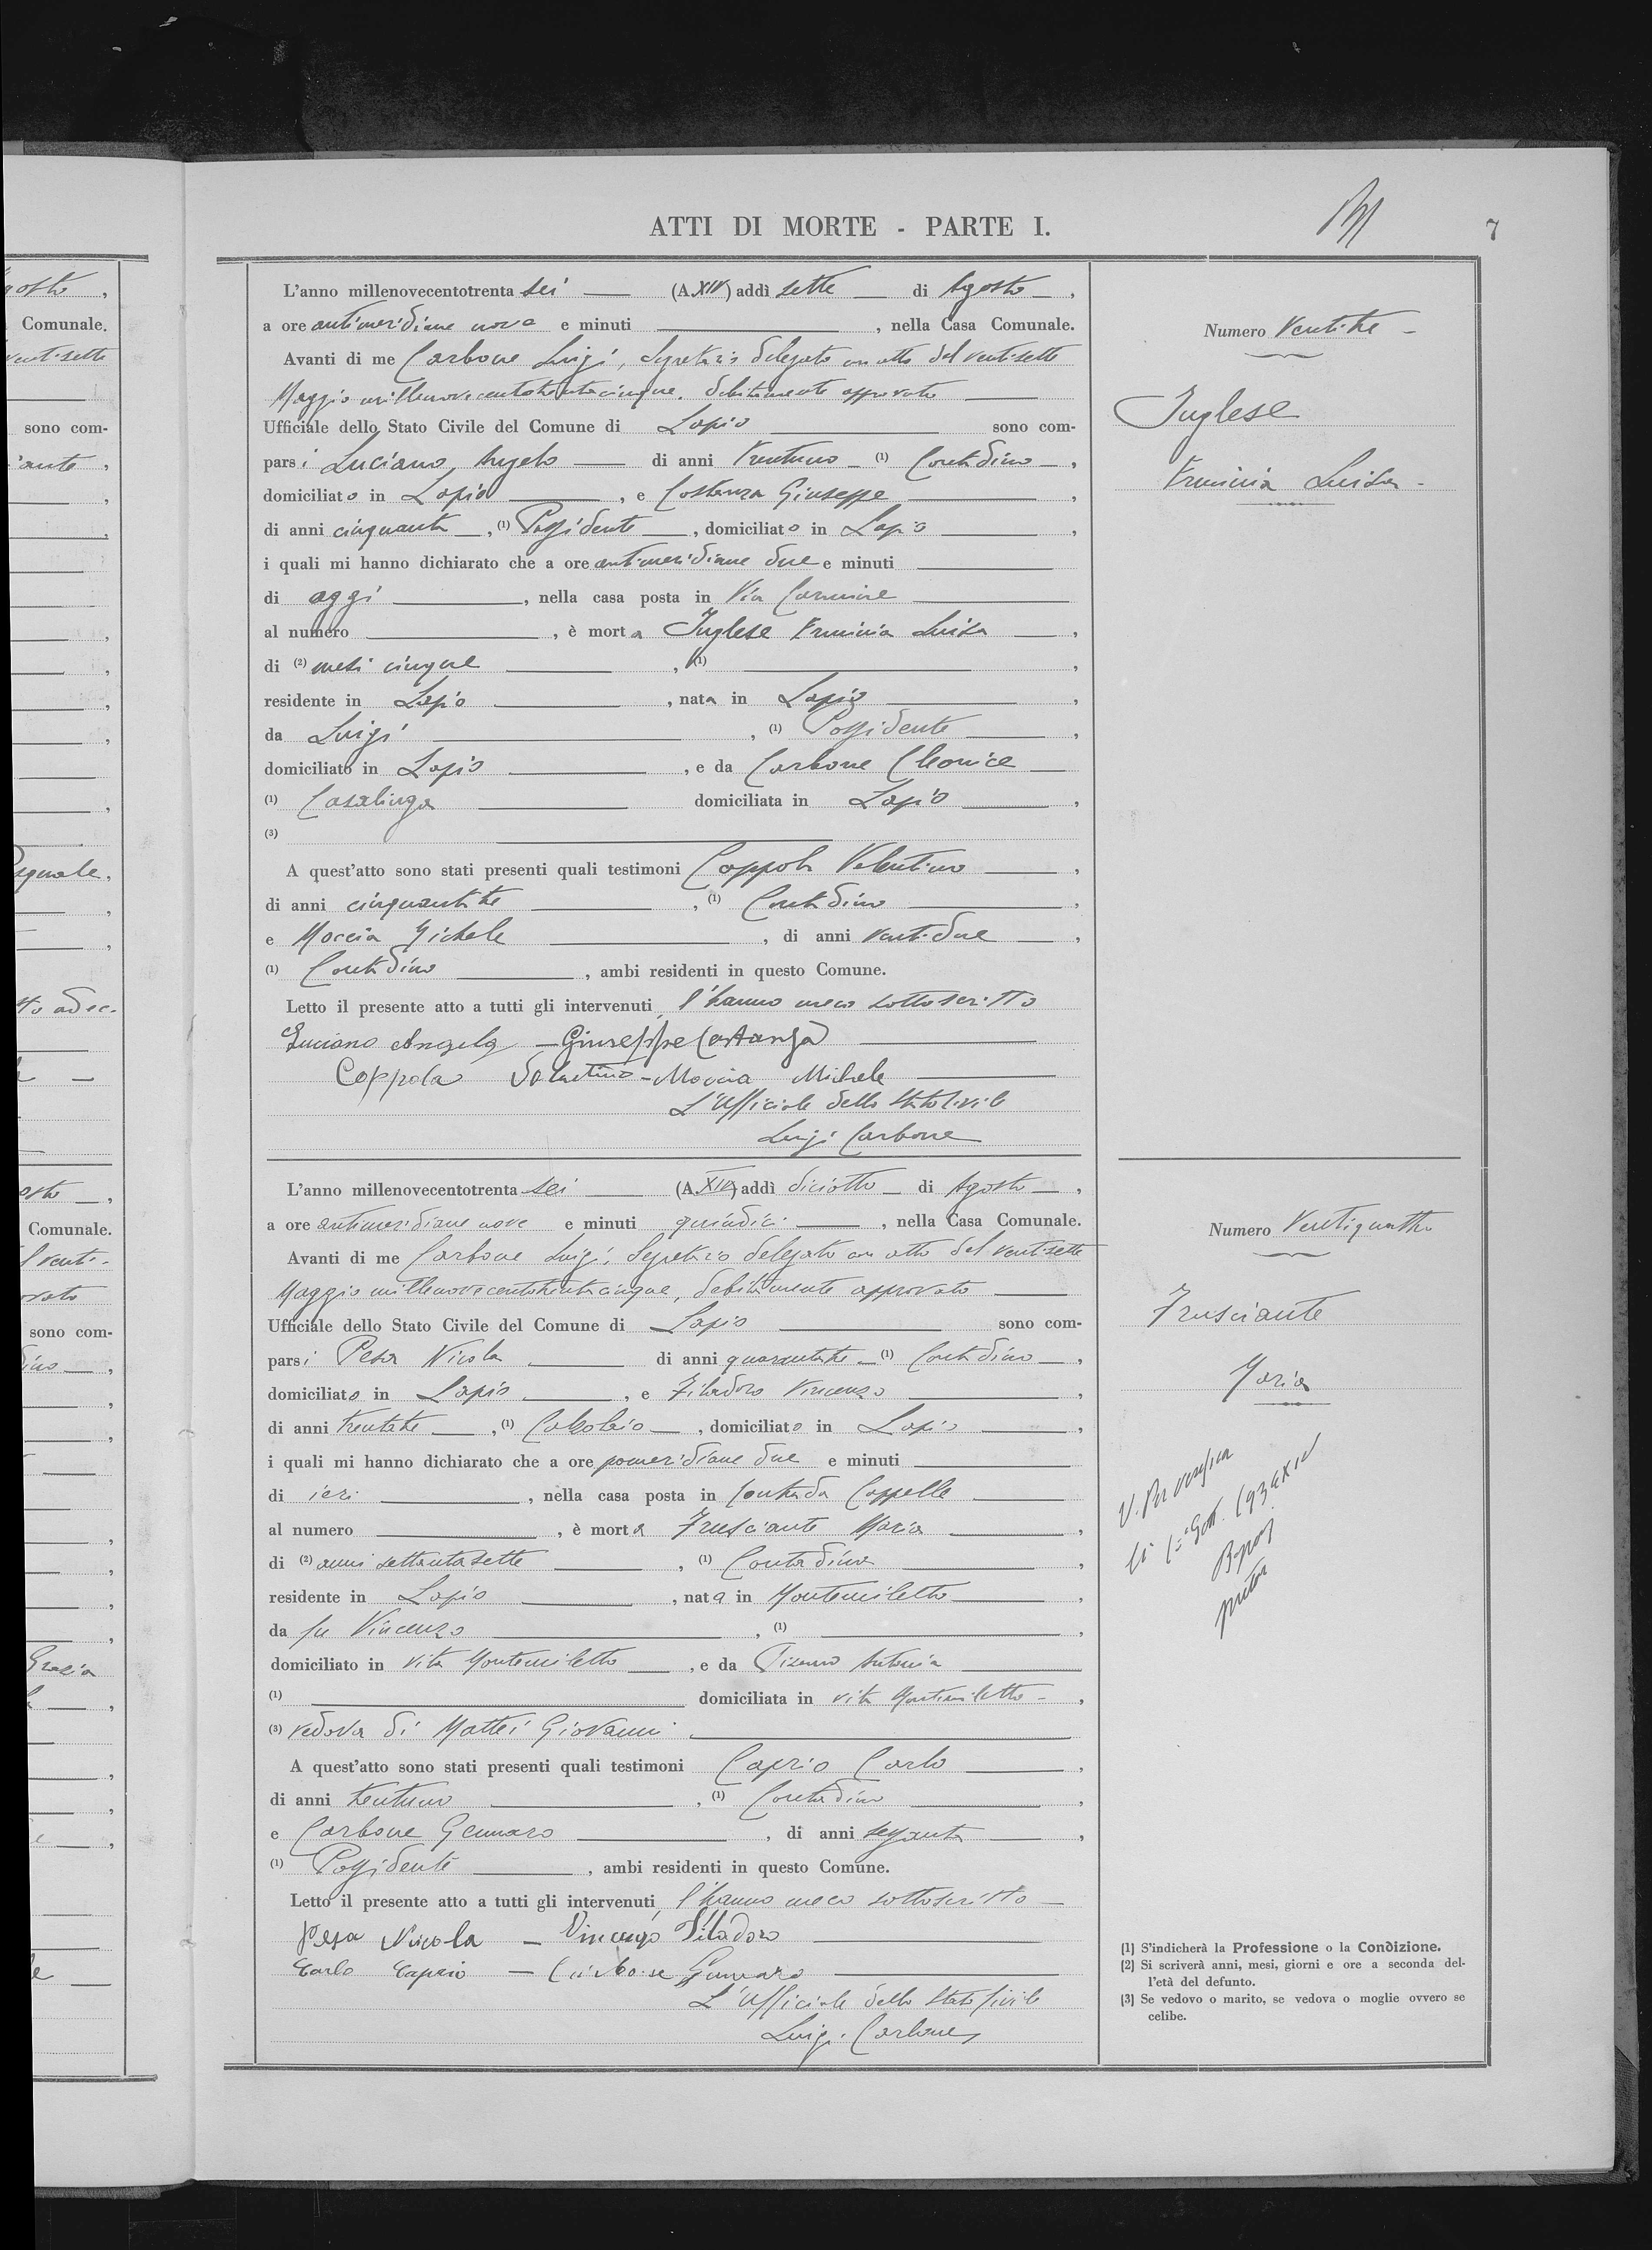 ATTI DI MORTE - PARTE I.
7
L'anno millenovecentotrenta sei (A. XIV) addì sette di Agosto,
a ore antimeridiane nove e minuti , nella Casa Comunale.
Avanti di me Carbone Luigi, Segretario delegato con atto del ventisette
Maggio millenovecentotrentacinque, debitamente approvato
Ufficiale dello Stato Civile del Comune di Lapio sono com-
parsi Luciano Angelo di anni trentuno (1) Contadino,
domiciliato in Lapio, e Costanza Giuseppe,
di anni cinquanta, (1) Possidente, domiciliato in Lapio,
i quali mi hanno dichiarato che a ore antimeridiane due e minuti
di oggi, nella casa posta in Via Carmine
al numero , è morta Inglese Erminia Luisa,
di (2) mesi cinque, (1) ,
residente in Lapio, nata in Lapio,
da Luigi, (1) Possidente,
domiciliato in Lapio, e da Carbone Cleonice
(1) Casalinga domiciliata in Lapio,
(3)
A quest'atto sono stati presenti quali testimoni Coppola Valentino,
di anni cinquantatre, (1) Contadino,
e Moccia Michele, di anni ventidue,
(1) Contadino, ambi residenti in questo Comune.
Letto il presente atto a tutti gli intervenuti, l'hanno meco sottoscritto
Luciano Angelo - Giuseppe Costanza
Coppola Valentino - Moccia Michele
L'Ufficiale dello Stato Civile
Luigi Carbone
Numero Ventitre -
Inglese
Erminia Luisa -
L'anno millenovecentotrenta sei (A. XIV) addì diciotto di Agosto,
a ore antimeridiane nove e minuti quindici, nella Casa Comunale.
Avanti di me Carbone Luigi, Segretario delegato con atto del ventisette
Maggio millenovecentotrentacinque, debitamente approvato
Ufficiale dello Stato Civile del Comune di Lapio sono com-
parsi Pesa Nicola di anni quarantatre (1) Contadino,
domiciliato in Lapio, e Filadoro Vincenzo,
di anni trentatre, (1) Calzolaio, domiciliato in Lapio,
i quali mi hanno dichiarato che a ore pomeridiane due e minuti
di ieri, nella casa posta in Contrada Cappelle
al numero , è morta Frusciante Maria,
di (2) anni settantasette, (1) Contadina,
residente in Lapio, nata in Montemiletto,
da fu Vincenzo, (1) ,
domiciliato in vita Montemiletto, e da Pisano Antonia
(1) domiciliata in vita Montemiletto -,
(3) vedova di Mattei Giovanni
A quest'atto sono stati presenti quali testimoni Caprio Carlo,
di anni trentuno, (1) Contadino,
e Carbone Gennaro, di anni sessanta,
(1) Possidente, ambi residenti in questo Comune.
Letto il presente atto a tutti gli intervenuti, l'hanno meco sottoscritto
Pesa Nicola - Vincenzo Filadoro
Carlo Caprio - Carbone Gennaro
L'Ufficiale dello Stato Civile
Luigi Carbone
Numero Ventiquattro
Frusciante
Maria
V. Per verifica
li 1° Sett. 1936 XIV
pretore
(1) S'indicherà la Professione o la Condizione.
(2) Si scriverà anni, mesi, giorni e ore a seconda del-
l'età del defunto.
(3) Se vedovo o marito, se vedova o moglie ovvero se
celibe.